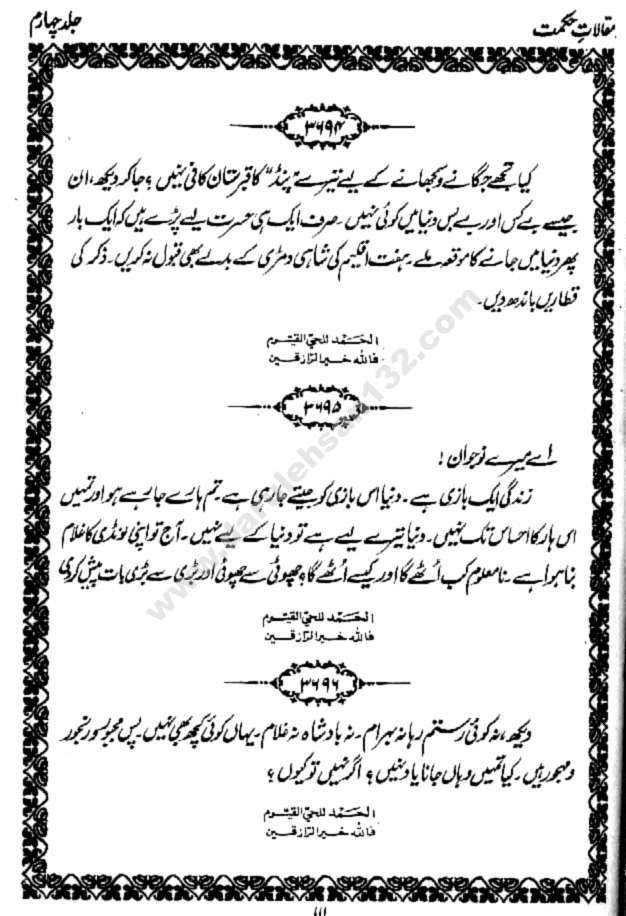 مقالاتِ حکمت
جلد چہارم
۳۶۹۴
کیا تجھے جگانے و سمجھانے کے لیے تیرے "پنڈ" کا قبرستان کافی نہیں؟ جا کر دیکھ، ان
جیسے بے کس اور بے بس دنیا میں کوئی نہیں۔ صرف ایک ہی حسرت لیے پڑے ہیں کہ ایک بار
پھر دنیا میں جانے کا موقعہ ملے۔ ہفت اقلیم کی شاہی دمڑی کے بدلے بھی قبول نہ کریں۔ ذکر کی
قطاریں باندھ دیں۔
الحَمْد للحيّ القيّوم
فاللّٰہ خيرالرّازقين
۳۶۹۵
اے میرے نوجوان!
زندگی ایک بازی ہے۔ دنیا اس بازی کو جیتے جا رہی ہے۔ تم ہارے جا رہے ہو اور تمہیں
اس ہار کا احساس تک نہیں۔ دنیا تیرے لیے ہے تو دنیا کے لیے نہیں۔ آج تو اپنی لونڈی کا غلام
بنا ہوا ہے۔ نا معلوم کب اُٹھے گا اور کیسے اُٹھے گا؟ چھوٹی سے چھوٹی اور بڑی سے بڑی بات پیش کر دی
الحَمْد للحيّ القيّوم
فاللّٰہ خيرالرّازقين
۳۶۹۶
دیکھ، نہ کوئی رستم رہا نہ بہرام۔ نہ بادشاہ نہ غلام۔ یہاں کوئی کچھ بھی نہیں۔ بس محبوس و رنجور
و مہجور ہیں۔ کیا تمہیں وہاں جانا یاد نہیں؟ اگر نہیں تو کیوں؟
الحَمْد للحيّ القيّوم
فاللّٰہ خيرالرّازقين
۱۱۱
www.darulehsan132.com